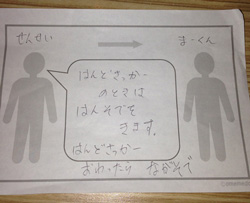 せんせい
まーくん
はんどさっかー
のときは
はんそでを
きます。
はんどさっかー
おわったら ながそで